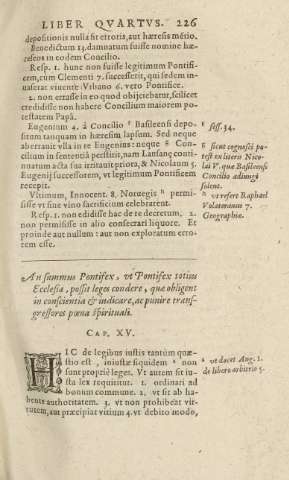 LIBER QVARTVS. 226
depositionis nulla sit erroris, aut hæresis métio.
Benedictum 13. damnatum fuisse nomine hæ-
reseos in eodem Concilio.
Resp. 1. hunc non fuisse legitimum Pontifi-
cem, cùm Clementi 7. successerit, qui sedem in-
uaserat viuente Vrbano 6. vero Pontifice.
2. non errasse in eo quod obijciebatur, scilicet
credidisse non habere Concilium maiorem po-
testatem Papâ.
Eugenium 4. à Concilio f Basileensi depo-
situm tanquam in hæresim lapsum. Sed neque
aberrauit vlla in re Eugenius: neque g Con-
cilium in sententia perstitit, nam Lausanę conti-
nuatum acta sua irritauit priora, & Nicolaum 5.
Eugenij successorem, vt legitimum Pontificem
recepit.
Vltimum, Innocent. 8. Noruegis h permi-
sisse vt sine vino sacrificium celebrarent.
Resp. 1. non edidisse hac de re decretum, 2.
non permisisse in alio consecrari liquore. Et
proinde aut nullum: aut non exploratum erro-
rem esse.
f sess. 34.
g sicut cognosci po-
test ex literis Nico-
lai V. quæ Basileensi
Concilio adiungi
solent.
h vt refert Raphael
Volateranus 7.
Geographiæ.
An summus Pontifex, vt Pontifex totius
Ecclesiæ, possit leges condere, quæ obligent
in conscientia & iudicare, ac punire trans-
gressores pœna spirituali.
CAP. XV.
HIC de legibus iustis tantùm quæ-
stio est, iniustæ siquidem a non
sunt propriè leges. Vt autem sit iu-
sta lex requiritur. 1. ordinari ad
bonum commune. 2. vt sit ab ha-
bente authoritatem. 3. vt non prohibeat vir-
tutem, aut præcipiat vitium 4. vt debito modo,
a vt docet Aug. 1.
de libero arbitrio 5.